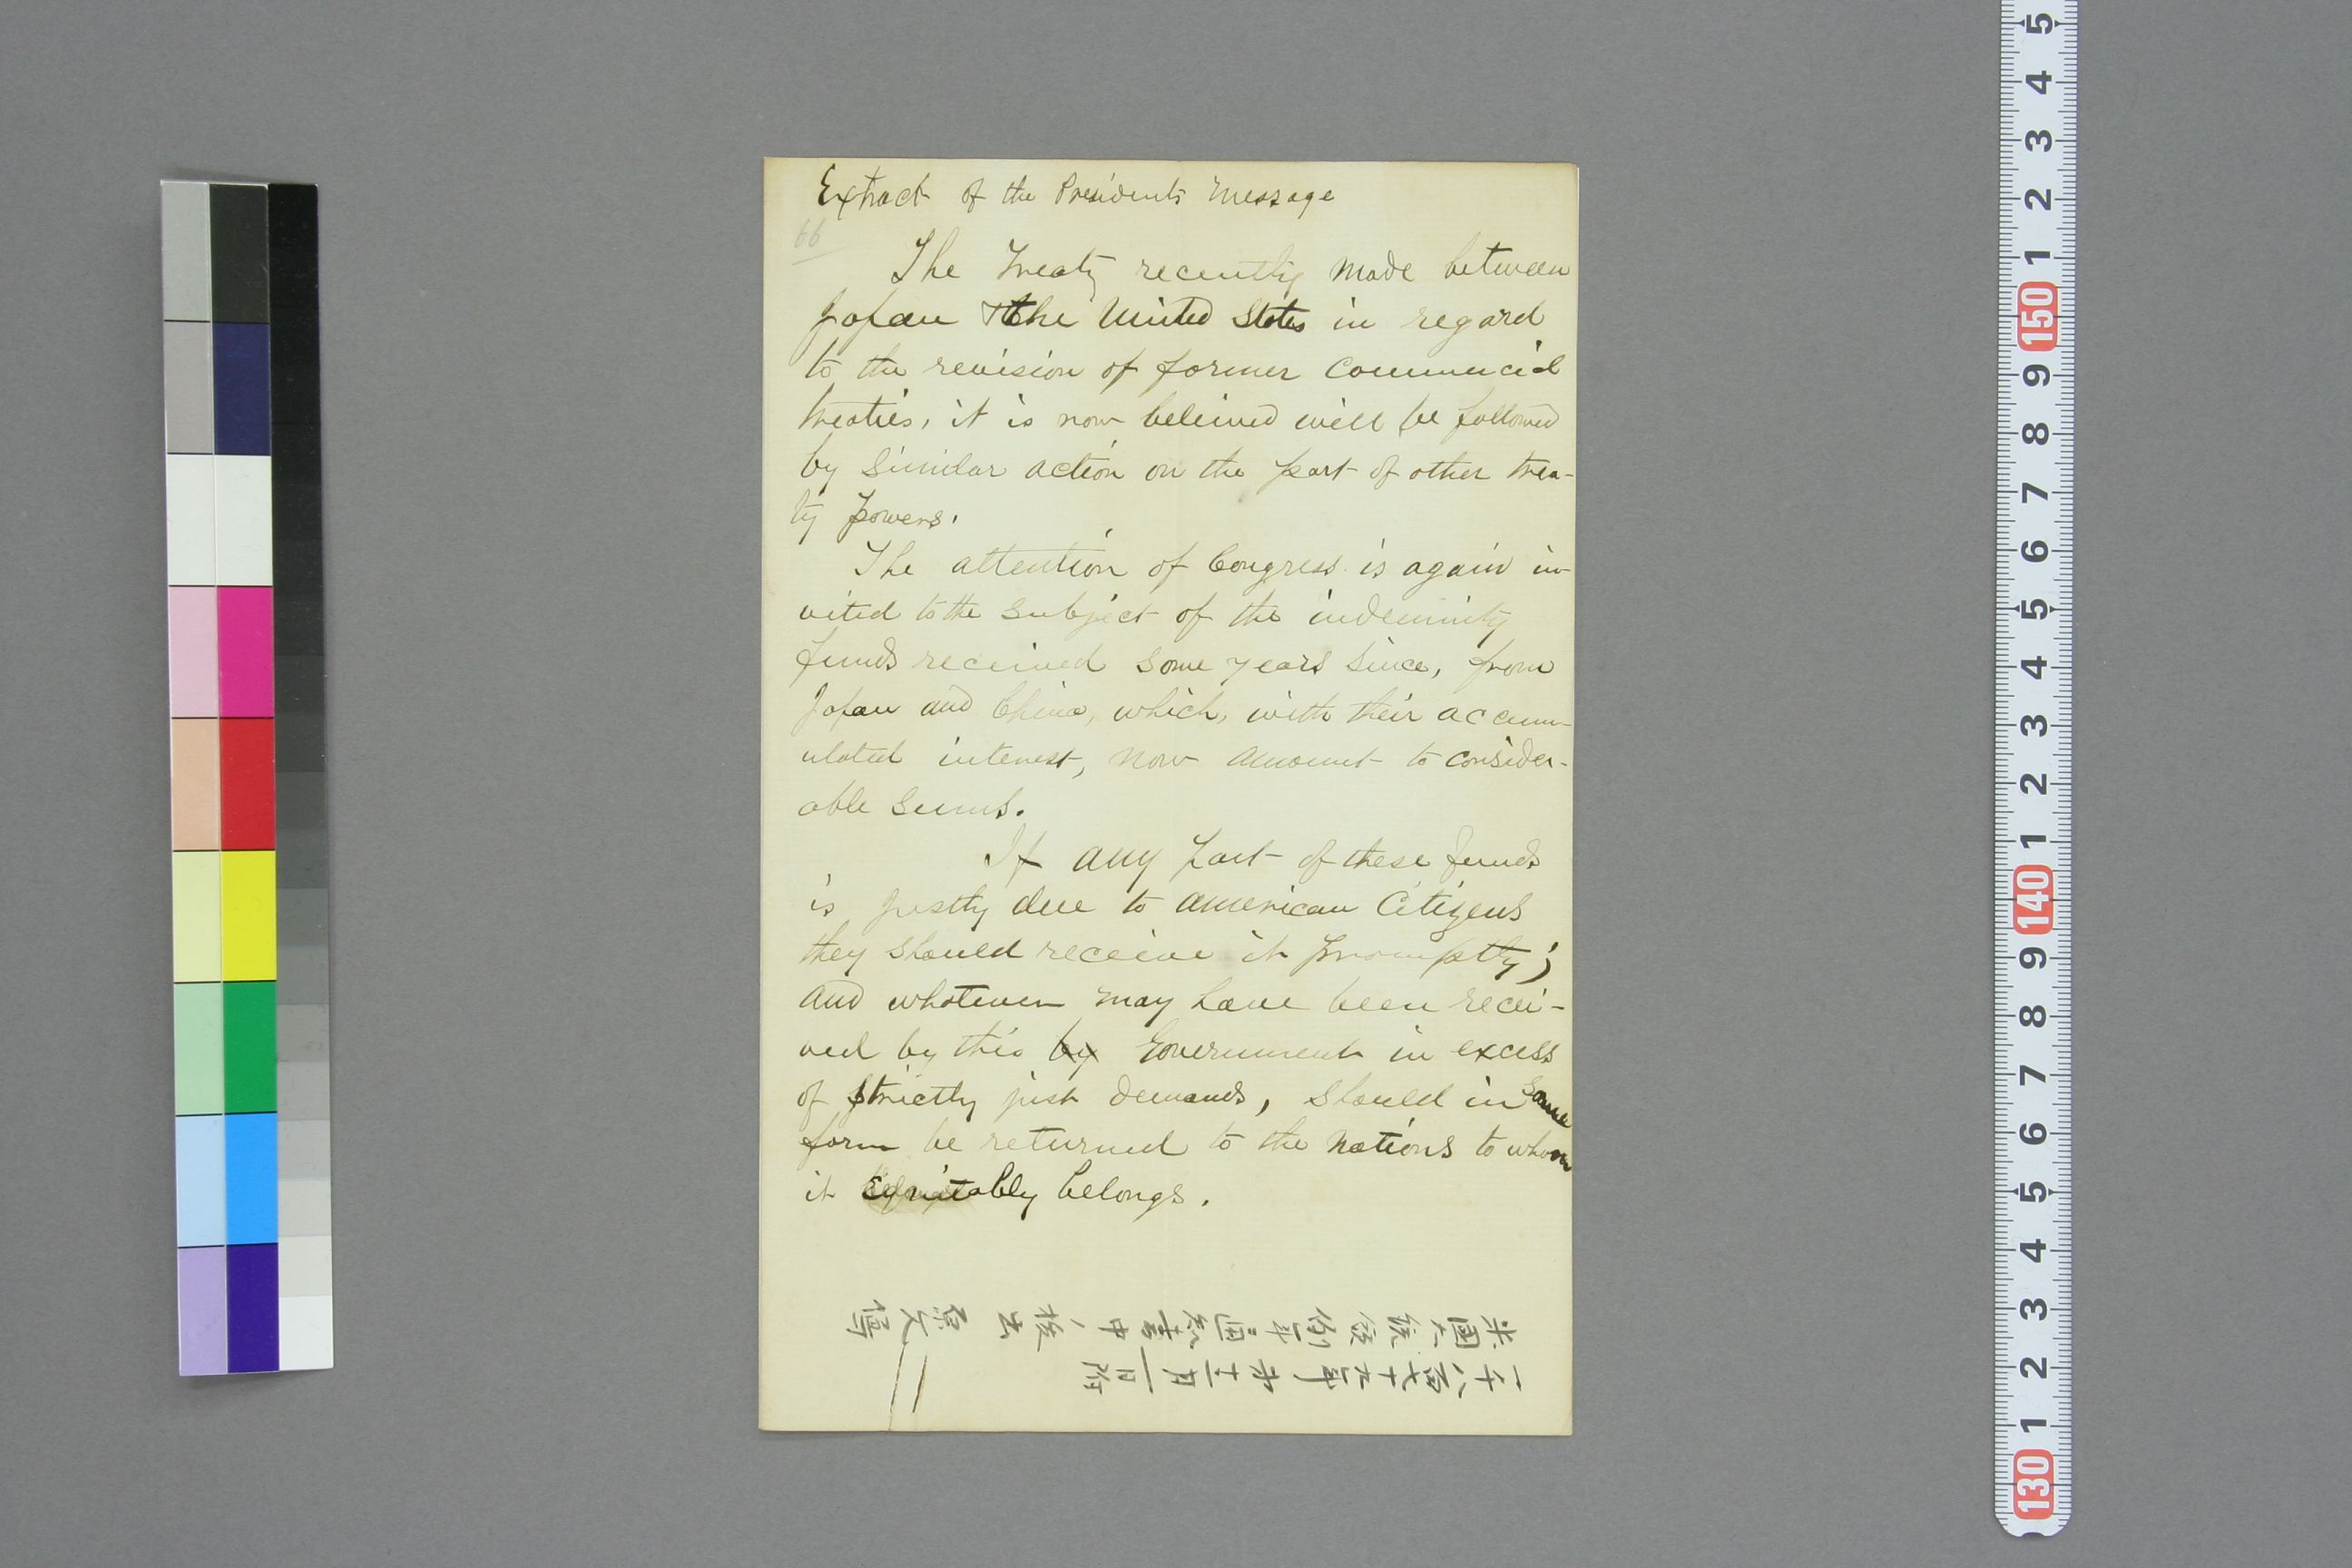 Extract of the Presidents Message
66
The Treaty recently made between
Japan & the United States in regard
to the revision of former commercial
treaties, it is now beleived will be followed
by similar action on the part of other trea-
ty powers.
The attention of Congress is again in-
vited to the subject of the indemnity
funds received some years since, from
Japan and China, which, with their accum-
ulated interest, now amount to consider-
able sums.
If any part of these funds
is justly due to American Citizens
they should receive it promptly;
and whatever may have been recei-
ved by this by Government in excess
of strictly just demands, should in some
form be returned to the nations to whom
it equitably belongs.
一千八百七十九年第十二月一日附
米國大統領
5
4
3
2
1
150
9
8
7
6
5
4
3
2
1
140
9
8
7
6
5
4
3
2
1
130